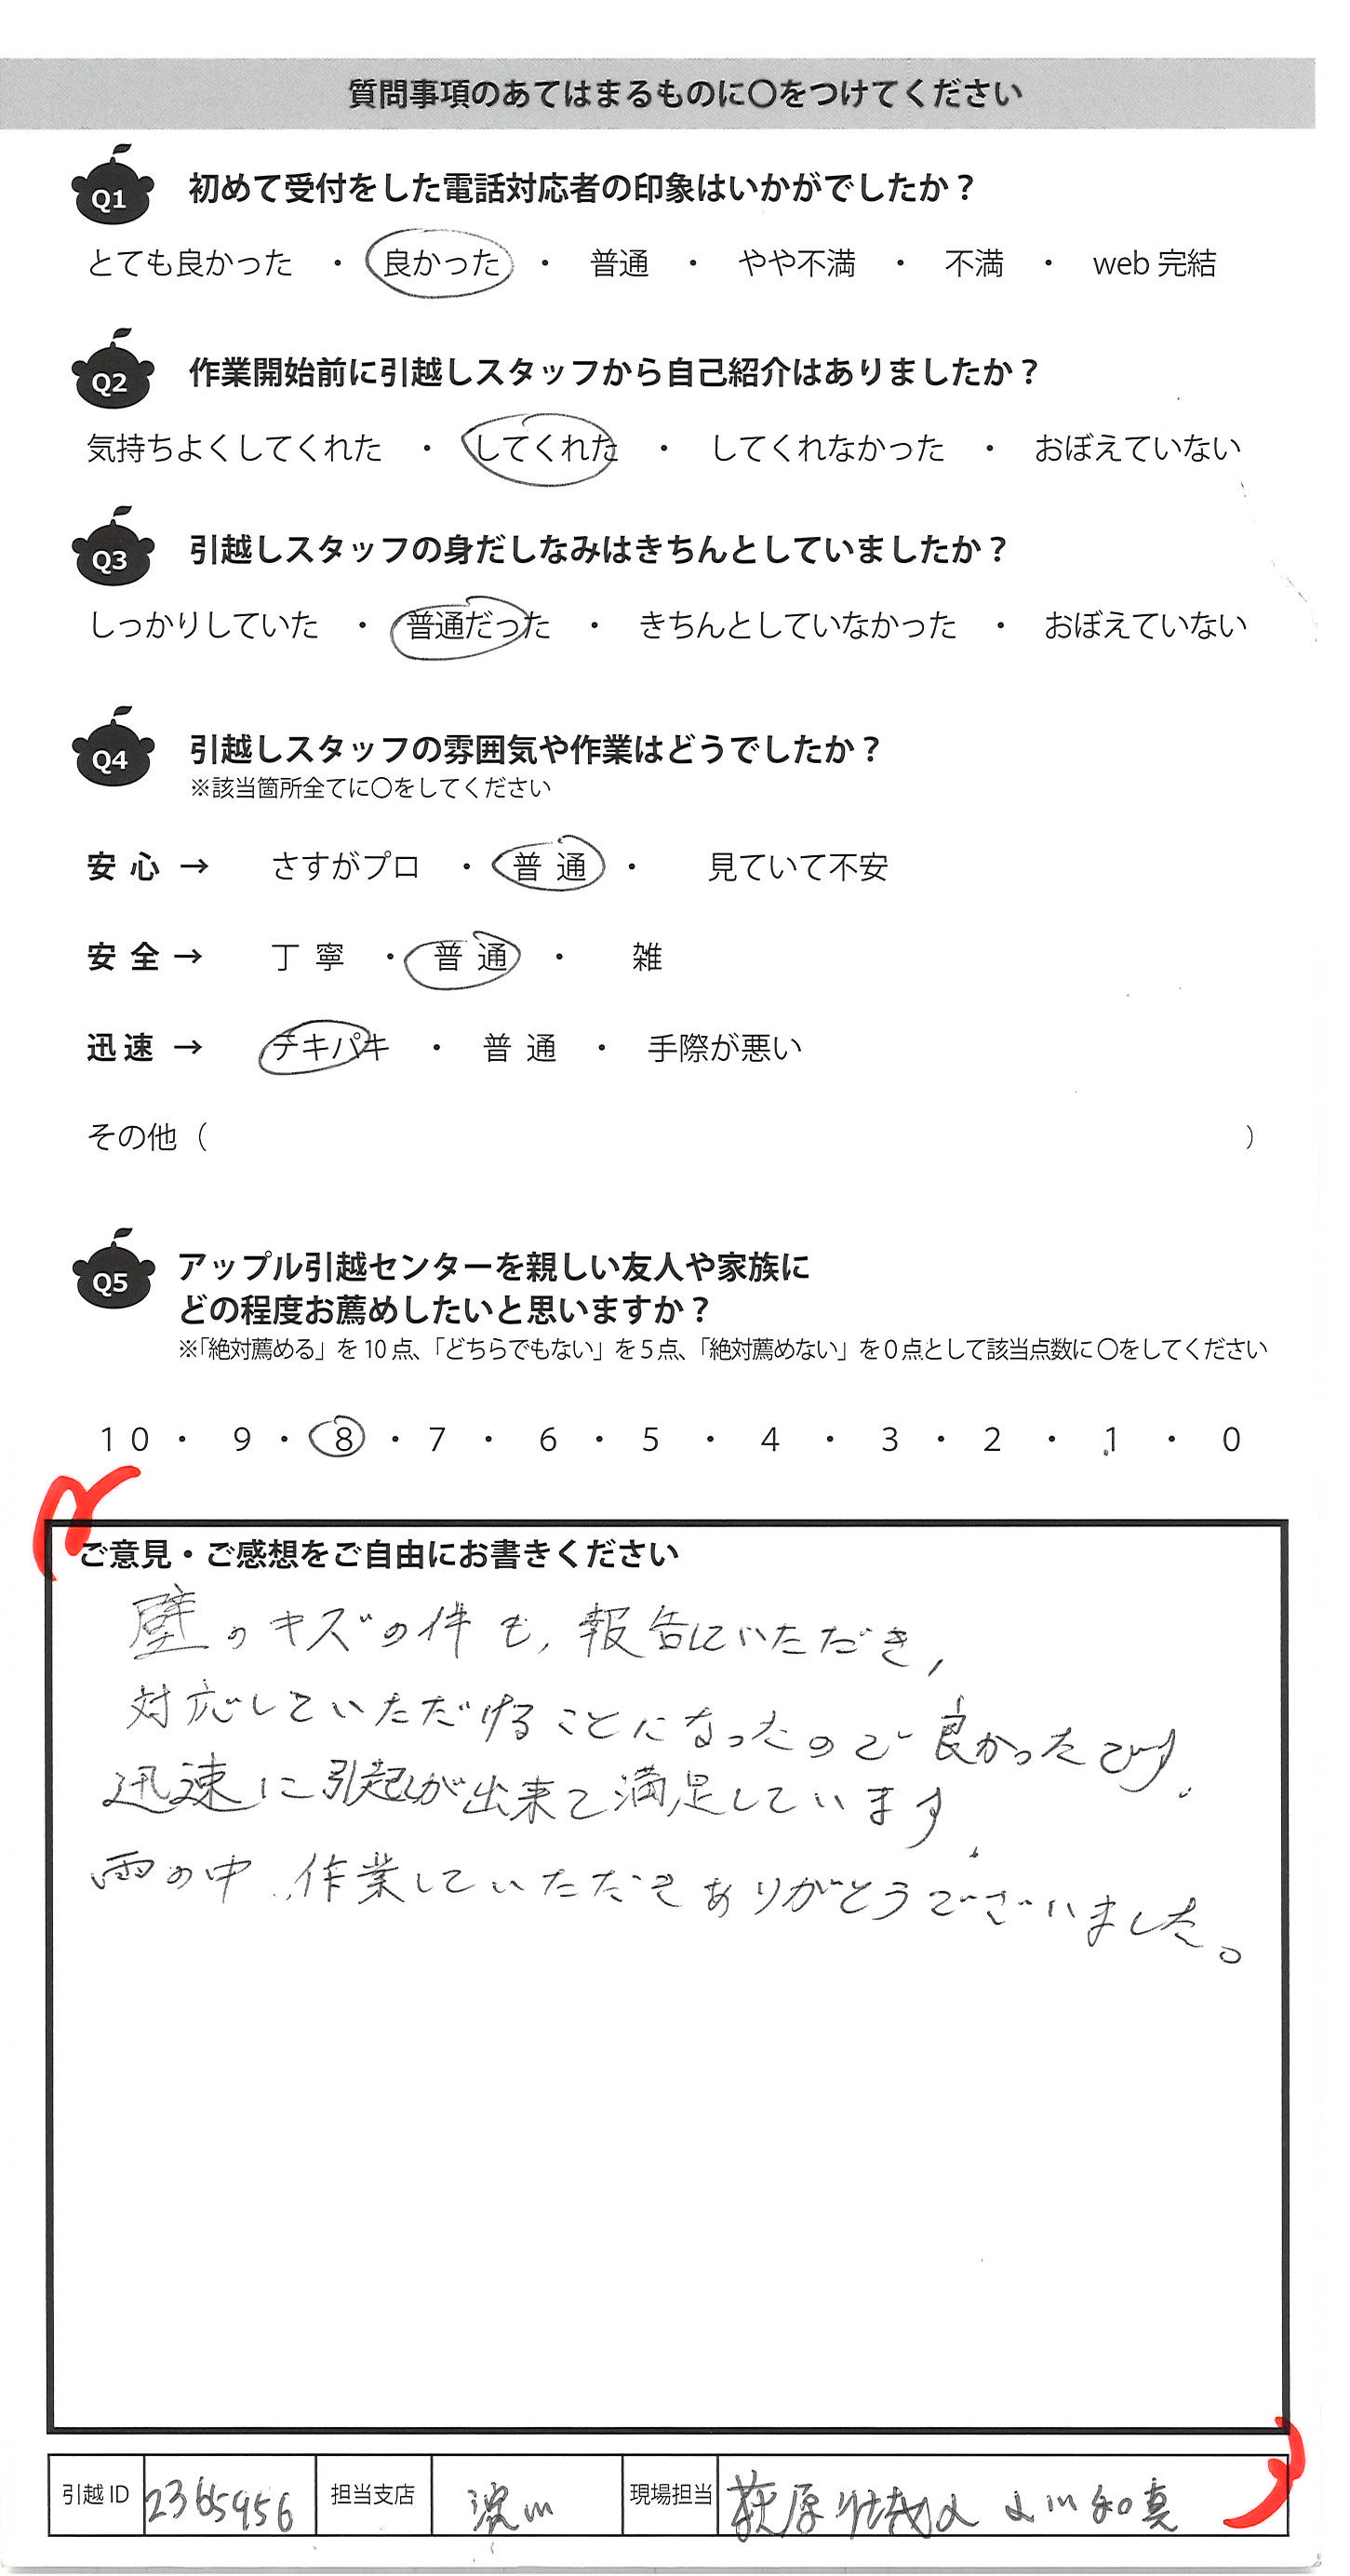 質問事項のあてはまるものに〇をつけてください
Q1 初めて受付をした電話対応者の印象はいかがでしたか？
とても良かった ・ 良かった ・ 普通 ・ やや不満 ・ 不満 ・ web 完結
Q2 作業開始前に引越しスタッフから自己紹介はありましたか？
気持ちよくしてくれた ・ してくれた ・ してくれなかった ・ おぼえていない
Q3 引越しスタッフの身だしなみはきちんとしていましたか？
しっかりしていた ・ 普通だった ・ きちんとしていなかった ・ おぼえていない
Q4 引越しスタッフの雰囲気や作業はどうでしたか？
※該当箇所全てに〇をしてください
安 心 → さすがプロ ・ 普 通 ・ 見ていて不安
安 全 → 丁 寧 ・ 普 通 ・ 雑
迅 速 → テキパキ ・ 普 通 ・ 手際が悪い
その他（ ）
Q5 アップル引越センターを親しい友人や家族に
どの程度お薦めしたいと思いますか？
※「絶対薦める」を 10 点、「どちらでもない」を 5 点、「絶対薦めない」を 0 点として該当点数に 〇をしてください
10 ・ 9 ・ 8 ・ 7 ・ 6 ・ 5 ・ 4 ・ 3 ・ 2 ・ 1 ・ 0
ご意見・ご感想をご自由にお書きください
壁のキズの件も、報告にいただき、
対応していただけることになったので良かったです。
迅速に引越しが出来て満足しています。
雨の中、作業していただきありがとうございました。
引越 ID 2365956 担当支店 現場担当